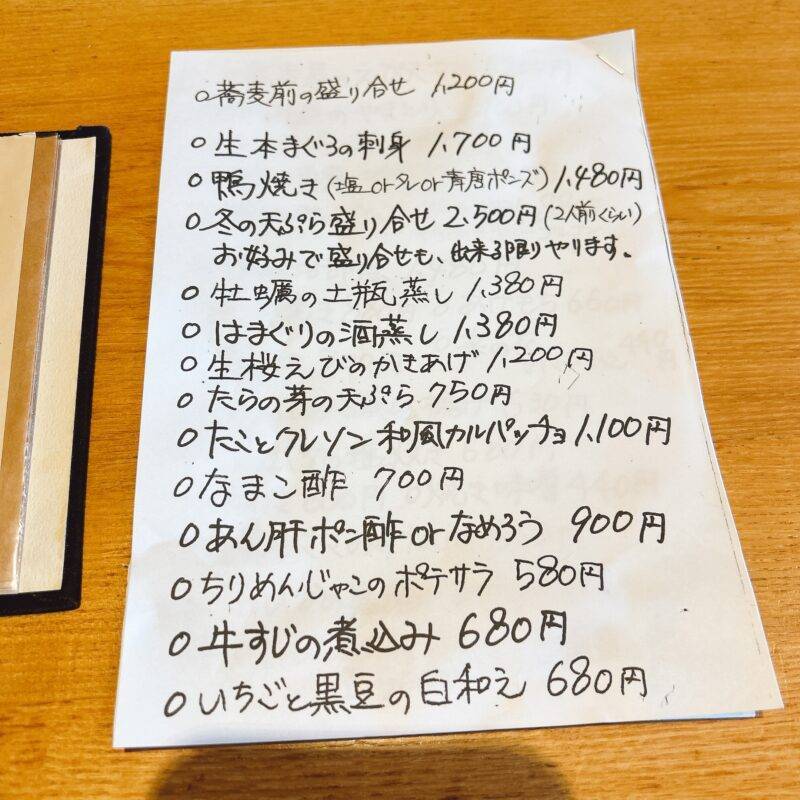 ○蕎麦前の盛り合せ 1,200円
○生本まぐろの刺身 1,700円
○鴨焼き(塩orタレor青唐ポンズ) 1,480円
○冬の天ぷら盛り合せ 2,500円(2人前くらい)
お好みで盛り合せも、出来る限りやります。
○牡蠣の土瓶蒸し 1,380円
○はまぐりの酒蒸し 1,380円
○生桜えびのかきあげ 1,200円
○たらの芽の天ぷら 750円
○たことクレソン和風カルパッチョ 1,100円
○なまこ酢 700円
○あん肝ポン酢orなめろう 900円
○ちりめんじゃこのポテサラ 580円
○牛すじの煮込み 680円
○いちごと黒豆の白和え 680円